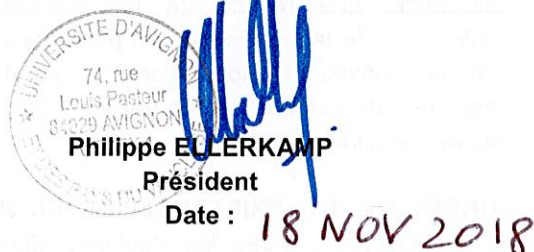 UNIVERSITE D'AVIGNON
ET DES PAYS DU VAUCLUSE
74, rue
Louis Pasteur
84029 AVIGNON
Philippe ELLERKAMP
Président
Date : 18 NOV 2018